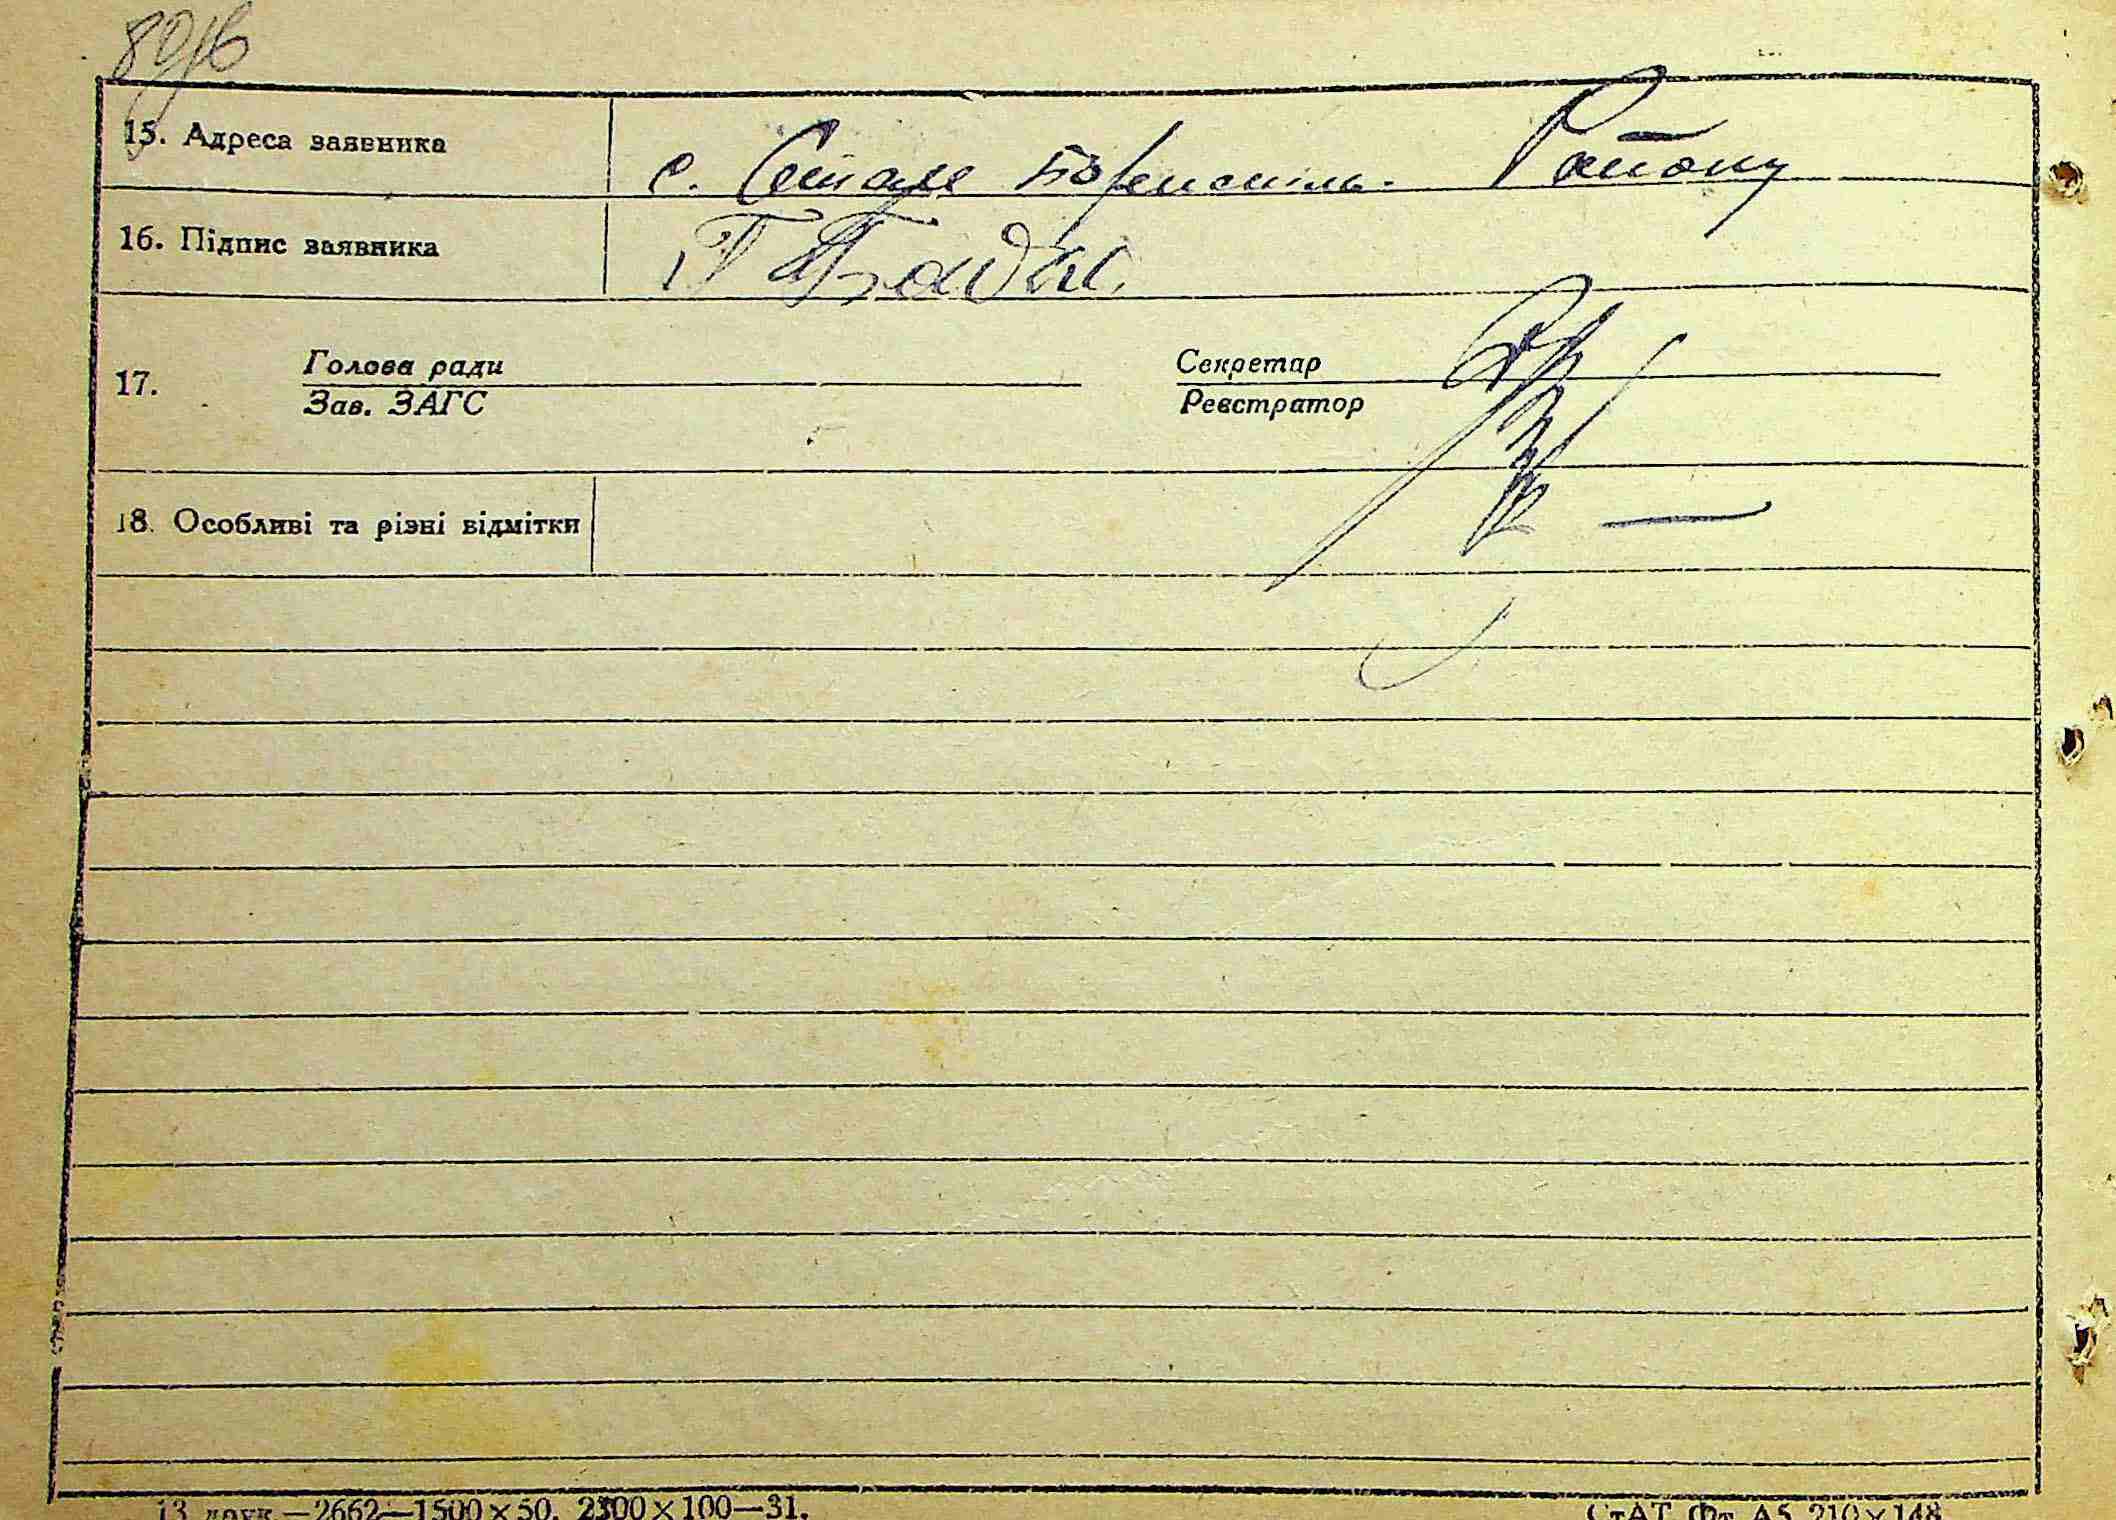 15. Адреса заявника с. Старе Бориспіль. Району
16. Підпис заявника
17. Голова ради Секретар
Зав. ЗАГС Реєстратор
18. Особливі та різні відмітки
13 друк.—2662—1500×50. 2300×100—31. СтАТ Фт А5 210×148